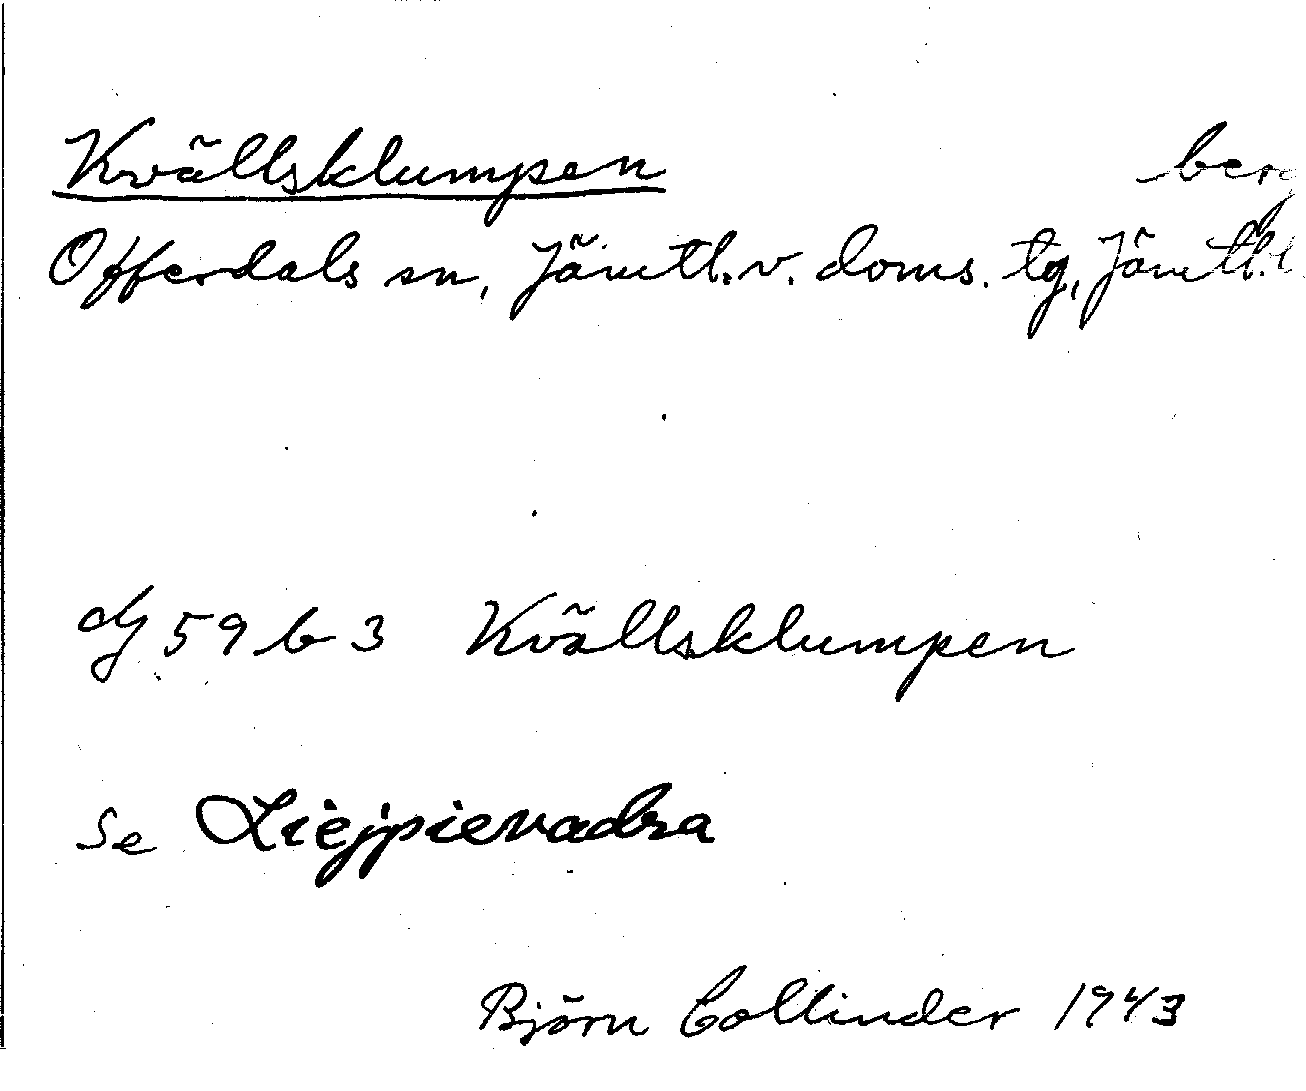 Kvällsklumpen berg
Offerdals sn, Jämtl. v. doms. tg, Jämtl. l.
59 b 3 Kvällsklumpen
Se Liejpievadra
Björn Collinder 1943